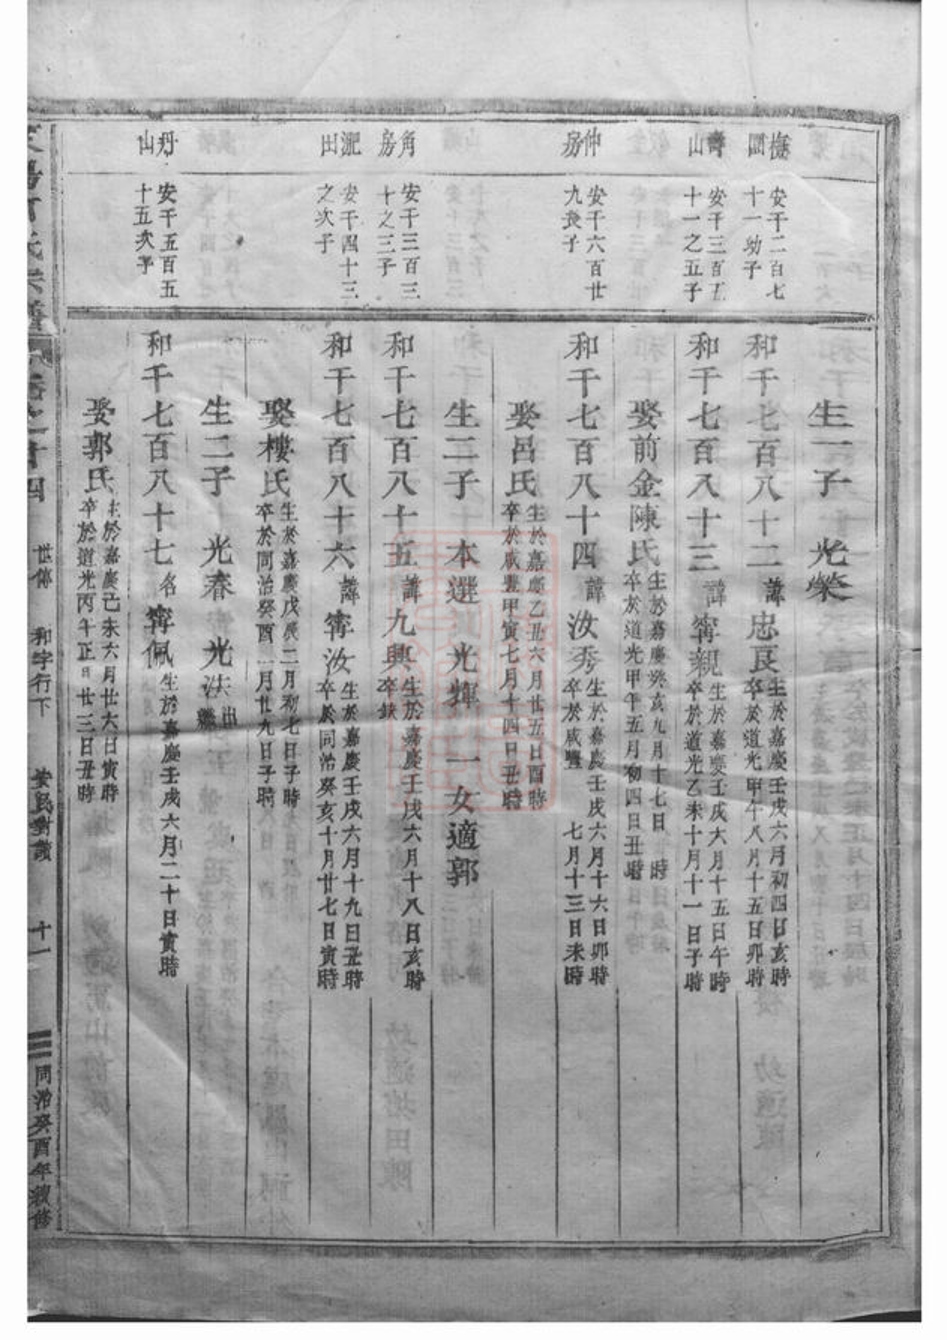 生一子 光榮
撫國 安千二百七十一幼子
和千七百八十二 諱忠良 生於嘉慶壬戌六月初四日亥時 卒於道光甲午八月十五日卯時
壽山 安千三百五十一之五子
和千七百八十三 諱甯親 生於嘉慶壬戌六月十五日午時 卒於道光乙未十月十一日子時
娶前金陳氏 生於嘉慶癸亥九月十七日 時 卒於道光甲午五月初四日丑時
仲房 安千六百廿九長子
和千七百八十四 諱汝秀 生於嘉慶壬戌六月十六日卯時 卒於咸豐 七月十三日未時
娶呂氏 生於嘉慶乙丑六月廿五日酉時 卒於咸豐甲寅七月十四日丑時
生二子 本選 光輝 一女適郭
角房 安千三百三十之三子
和千七百八十五 諱九興 生於嘉慶壬戌六月十八日亥時 卒缺
淝田 安千四十三之次子
和千七百八十六 諱甯汝 生於嘉慶壬戌六月十九日丑時 卒於同治癸亥十月廿七日寅時
娶樓氏 生於嘉慶戊辰二月初七日子時 卒於同治癸酉一月廿九日子時
生二子 光春 光法 出繼
丹山 安千五百五十五次子
和千七百八十七 名甯佩 生於嘉慶壬戌六月二十日寅時
娶郭氏 生於嘉慶己未六月廿六日寅時 卒於道光丙午正月廿三日丑時
氏宗譜 卷之十四 世傳 和字行下 十一 同治癸酉年敘修